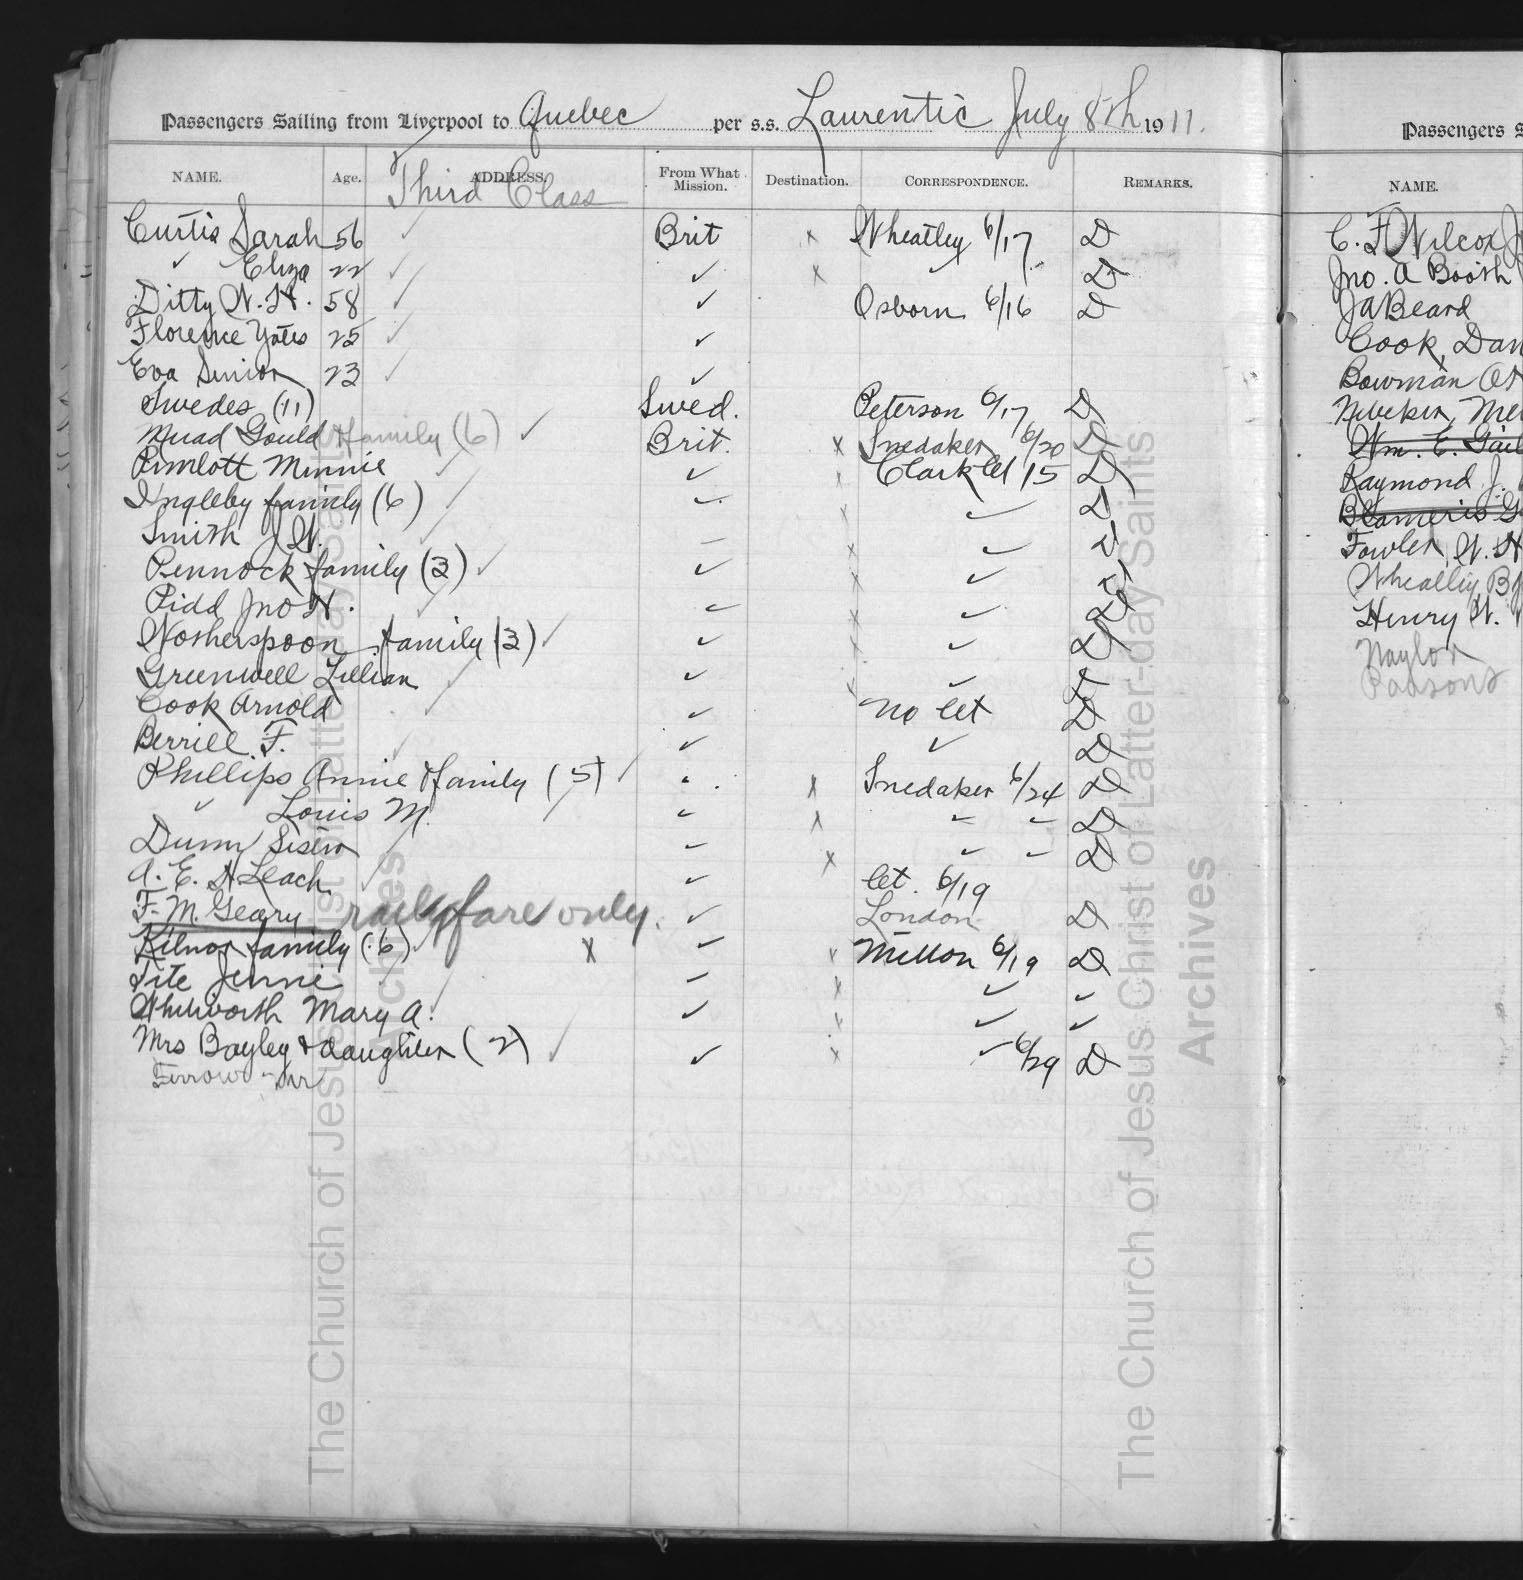 Passengers Sailing from Liverpool to Quebec per s.s. Laurentic July 8th 1911.
NAME. Age. ADDRESS. From What Mission. Destination. CORRESPONDENCE. REMARKS.
Third Class
Curtis Sarah 56 ✓ Brit x Wheatley 6/17 D
✓ Eliza 22 ✓ ✓ x ✓ D
Ditty W. H. 58 ✓ ✓ Osborn 6/16 D
Florence Yates 25 ✓ ✓
Eva Senior 23 ✓ ✓
Swedes (11) Swed. Peterson 6/17 D
Muad Gould & family (6) ✓ Brit. x Snedaker 6/20 D
Pimlott Minnie ✓ ✓ x Clark let 15 D
Ingleby family (6) ✓ ✓ x ✓ D
Smith J W. ✓ x ✓ D
Pennock family (3) ✓ ✓ x ✓ D
Pidd Jno H. ✓ ✓ x ✓ D
Wotherspoon family (3) ✓ ✓ x ✓ D
Greenwell Lillian ✓ ✓ x ✓ D
Cook Arnold ✓ ✓ no let D
Berrill F. ✓ ✓ ✓ D
Phillips Annie & family (5) ✓ x Snedaker 6/24 D
✓ Louis M. ✓ ✓ x ✓ ✓ D
Dunn Sister ✓ ✓ x ✓ ✓ D
A. E. H Leach ✓ ✓ let. 6/19
F. M. Geary rail fare only. ✓ London D
Kilner family (6) ✓ x ✓ x Mellon 6/19 D
Tite Jennie ✓ x ✓ ✓
Whitworth Mary A. ✓ ✓ x ✓ ✓
Mrs Bayley & daughter (2) ✓ ✓ x ✓ 6/29 D
Passengers S
NAME.
C. F. Wilcox
Jno. A Booth
J A Beard
Cook, Dan
Bowman
Wm. E.
Raymond J.
Fowler, W. H
Wheatley
Henry W.
Naylor
Parsons
The Church of Jesus Christ of Latter-day Saints
Archives
The Church of Jesus Christ of Latter-day Saints
Archives